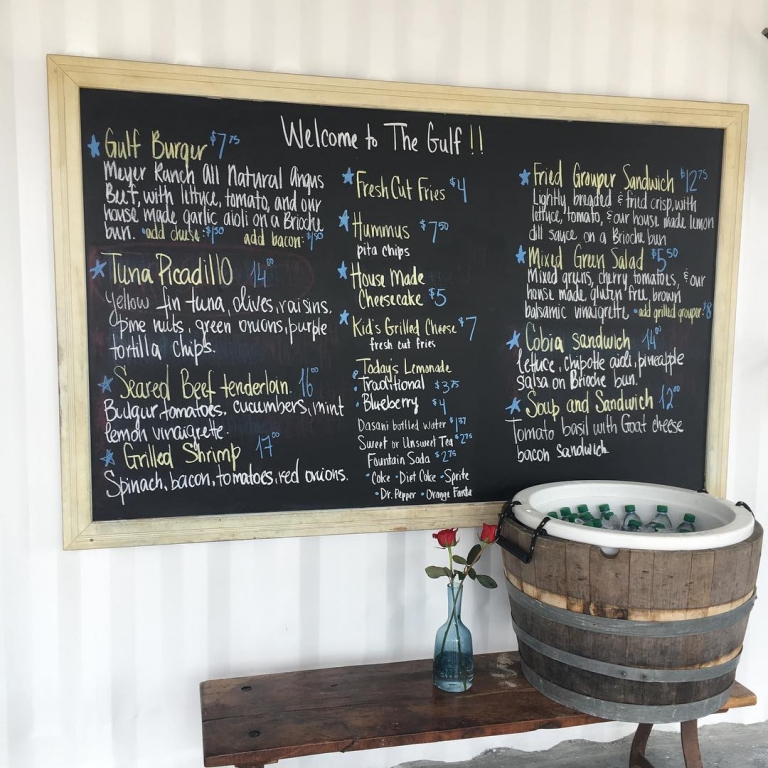 Welcome to The Gulf !!
Gulf Burger $7 75
Meyer Ranch All Natural Angus
Beef, with lettuce, tomato, and our
house made garlic aioli on a Brioche
bun. • add cheese $1 50 add bacon $1 50
Tuna Picadillo 14 00
yellow fin tuna, olives, raisins,
pine nuts, green onions, purple
tortilla chips.
Seared Beef tenderloin. 16 00
Bulgur tomatoes, cucumbers, mint
lemon vinaigrette.
Grilled Shrimp 17 00
Spinach, bacon, tomatoes, red onions.
Fresh Cut Fries $4
Hummus $7 50
pita chips
House Made
Cheesecake $5
Kid's Grilled Cheese $7
fresh cut fries
Today's Lemonade
• Traditional $3.75
• Blueberry $4
Dasani bottled water $1.87
Sweet or Unsweet Tea $2.75
Fountain Soda $2.75
• Coke • Diet Coke • Sprite
• Dr. Pepper • Orange Fanta
Fried Grouper Sandwich $12 75
Lightly breaded & fried crisp, with
lettuce, tomato, & our house made lemon
dill sauce on a Brioche bun
Mixed Green Salad $5 50
Mixed greens, cherry tomatoes, & our
house made gluten free brown
balsamic vinaigrette • add grilled grouper $8
Cobia sandwich 14 00
lettuce, chipotle aioli, pineapple
salsa on Brioche bun.
Soup and Sandwich 12 00
Tomato basil with Goat cheese
bacon sandwich.